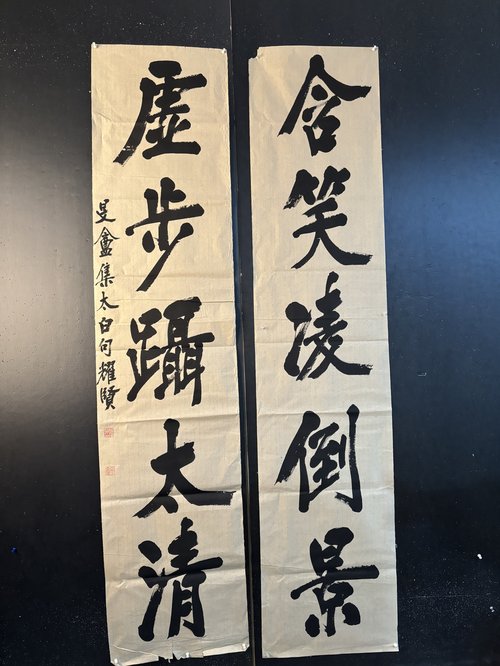 含笑凌倒景
虛步躡太清
旻盦集太白句耀賢